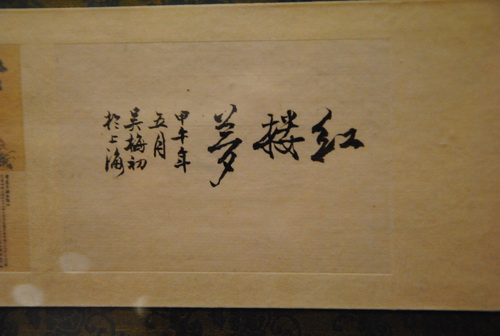 红楼梦
甲午年
五月
吴梅初
於上海